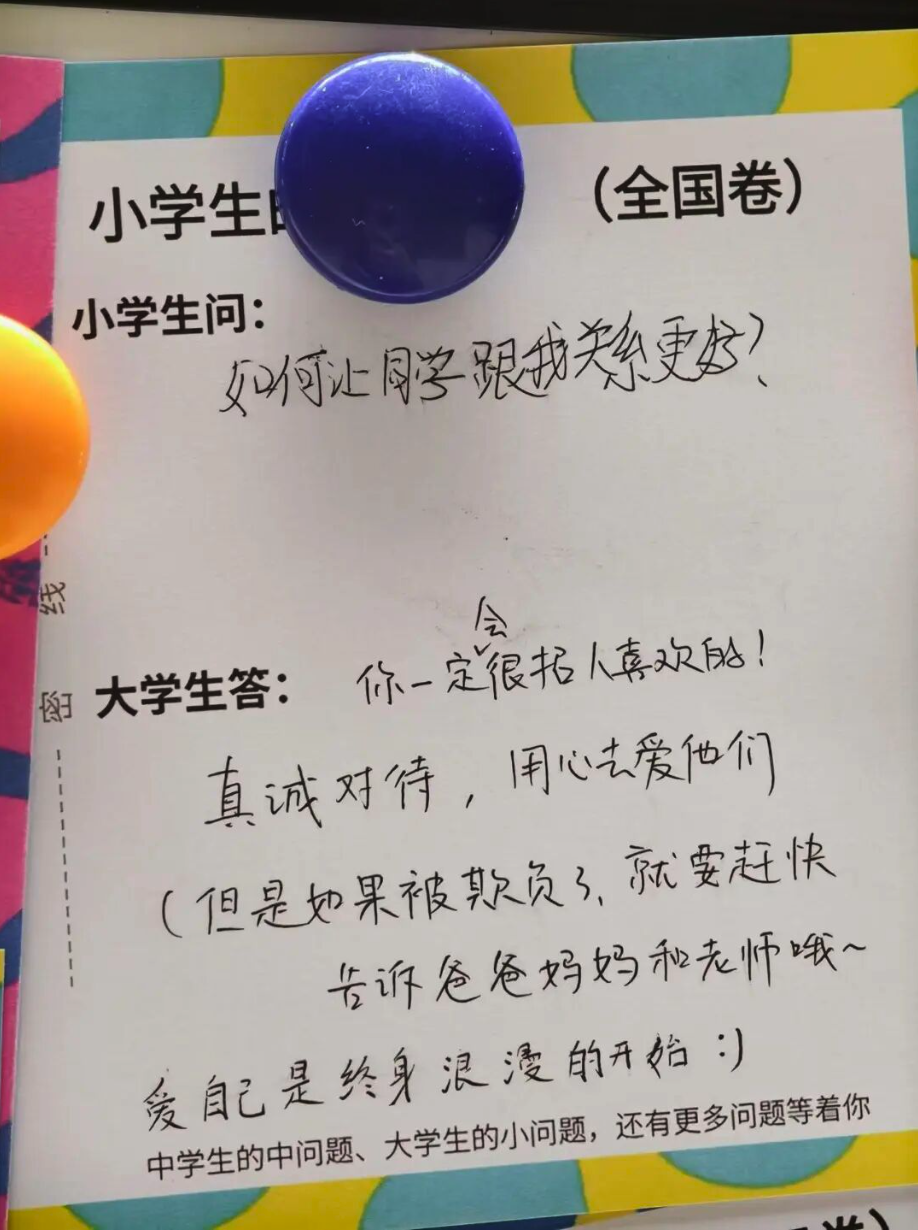 小学生 （全国卷）
小学生问：
如何让同学跟我关系更好？
会
大学生答： 你一定很招人喜欢的！
真诚对待，用心去爱他们
（但是如果被欺负了、就要赶快
告诉爸爸妈妈和老师哦～
爱自己是终身浪漫的开始 :)
中学生的中问题、大学生的小问题，还有更多问题等着你
线
密
卷）